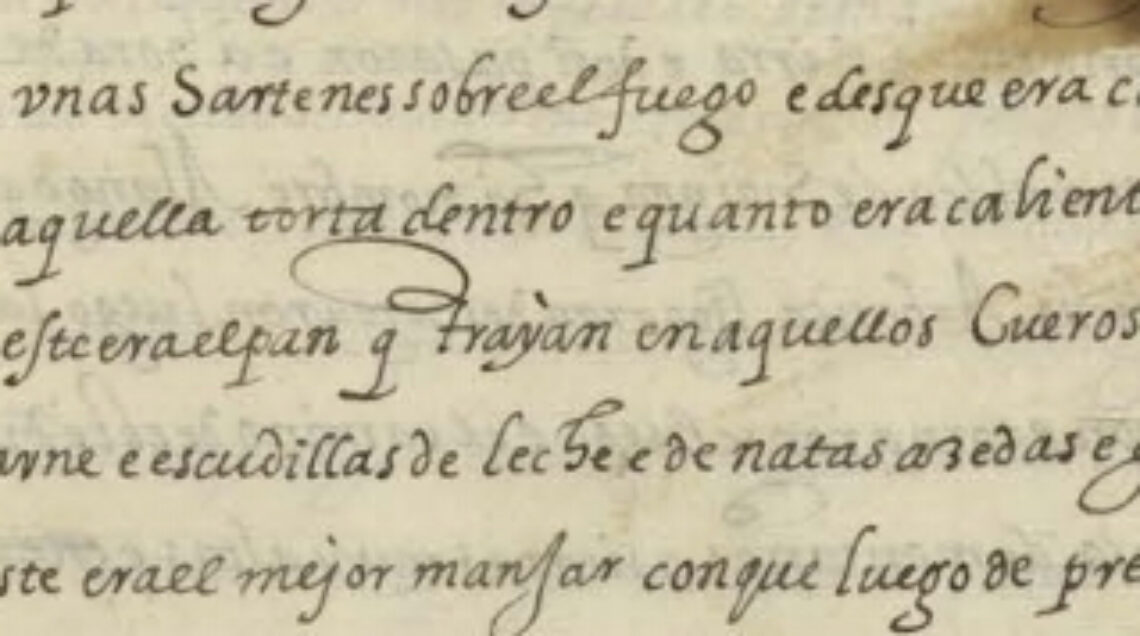 vnas Sartenes sobre el fuego e desque era c
aquella torta dentro e quanto era calient
este era el pan q trayàn en aquellos Cueros
arne e escudillas de leche e de natas azedas e
ste era el mejor manjar con que luego de pre